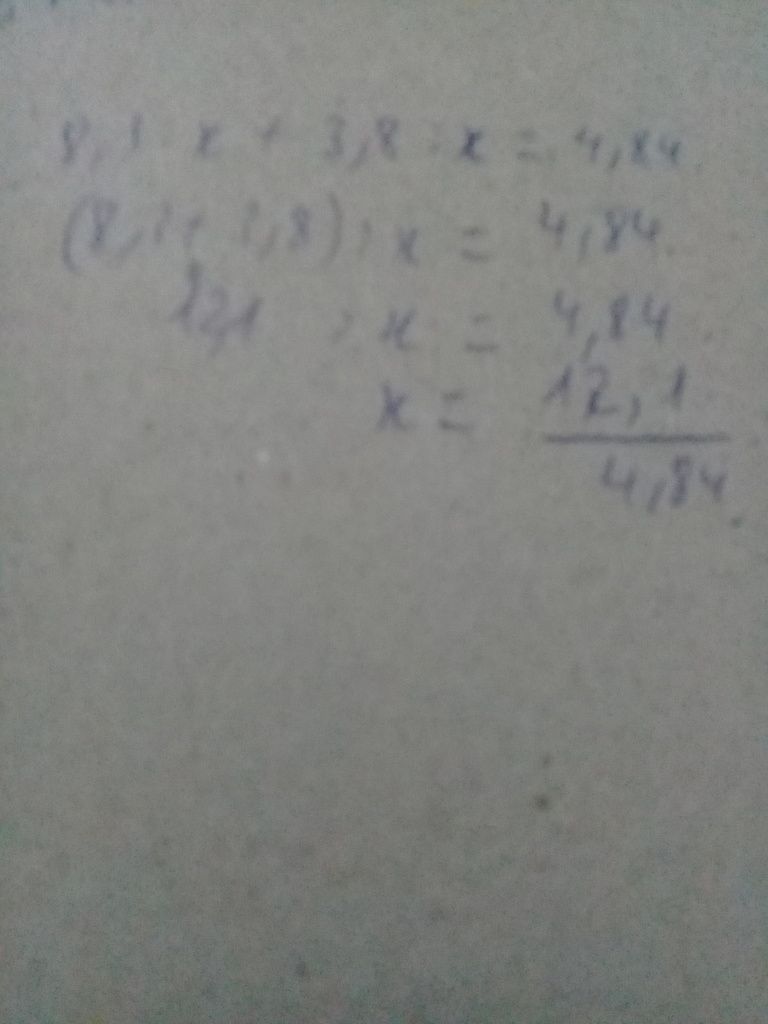 8,3 : x + 3,8 : x = 4,84
(8,3 + 3,8) : x = 4,84
12,1 : x = 4,84
x = 12,1
4,84